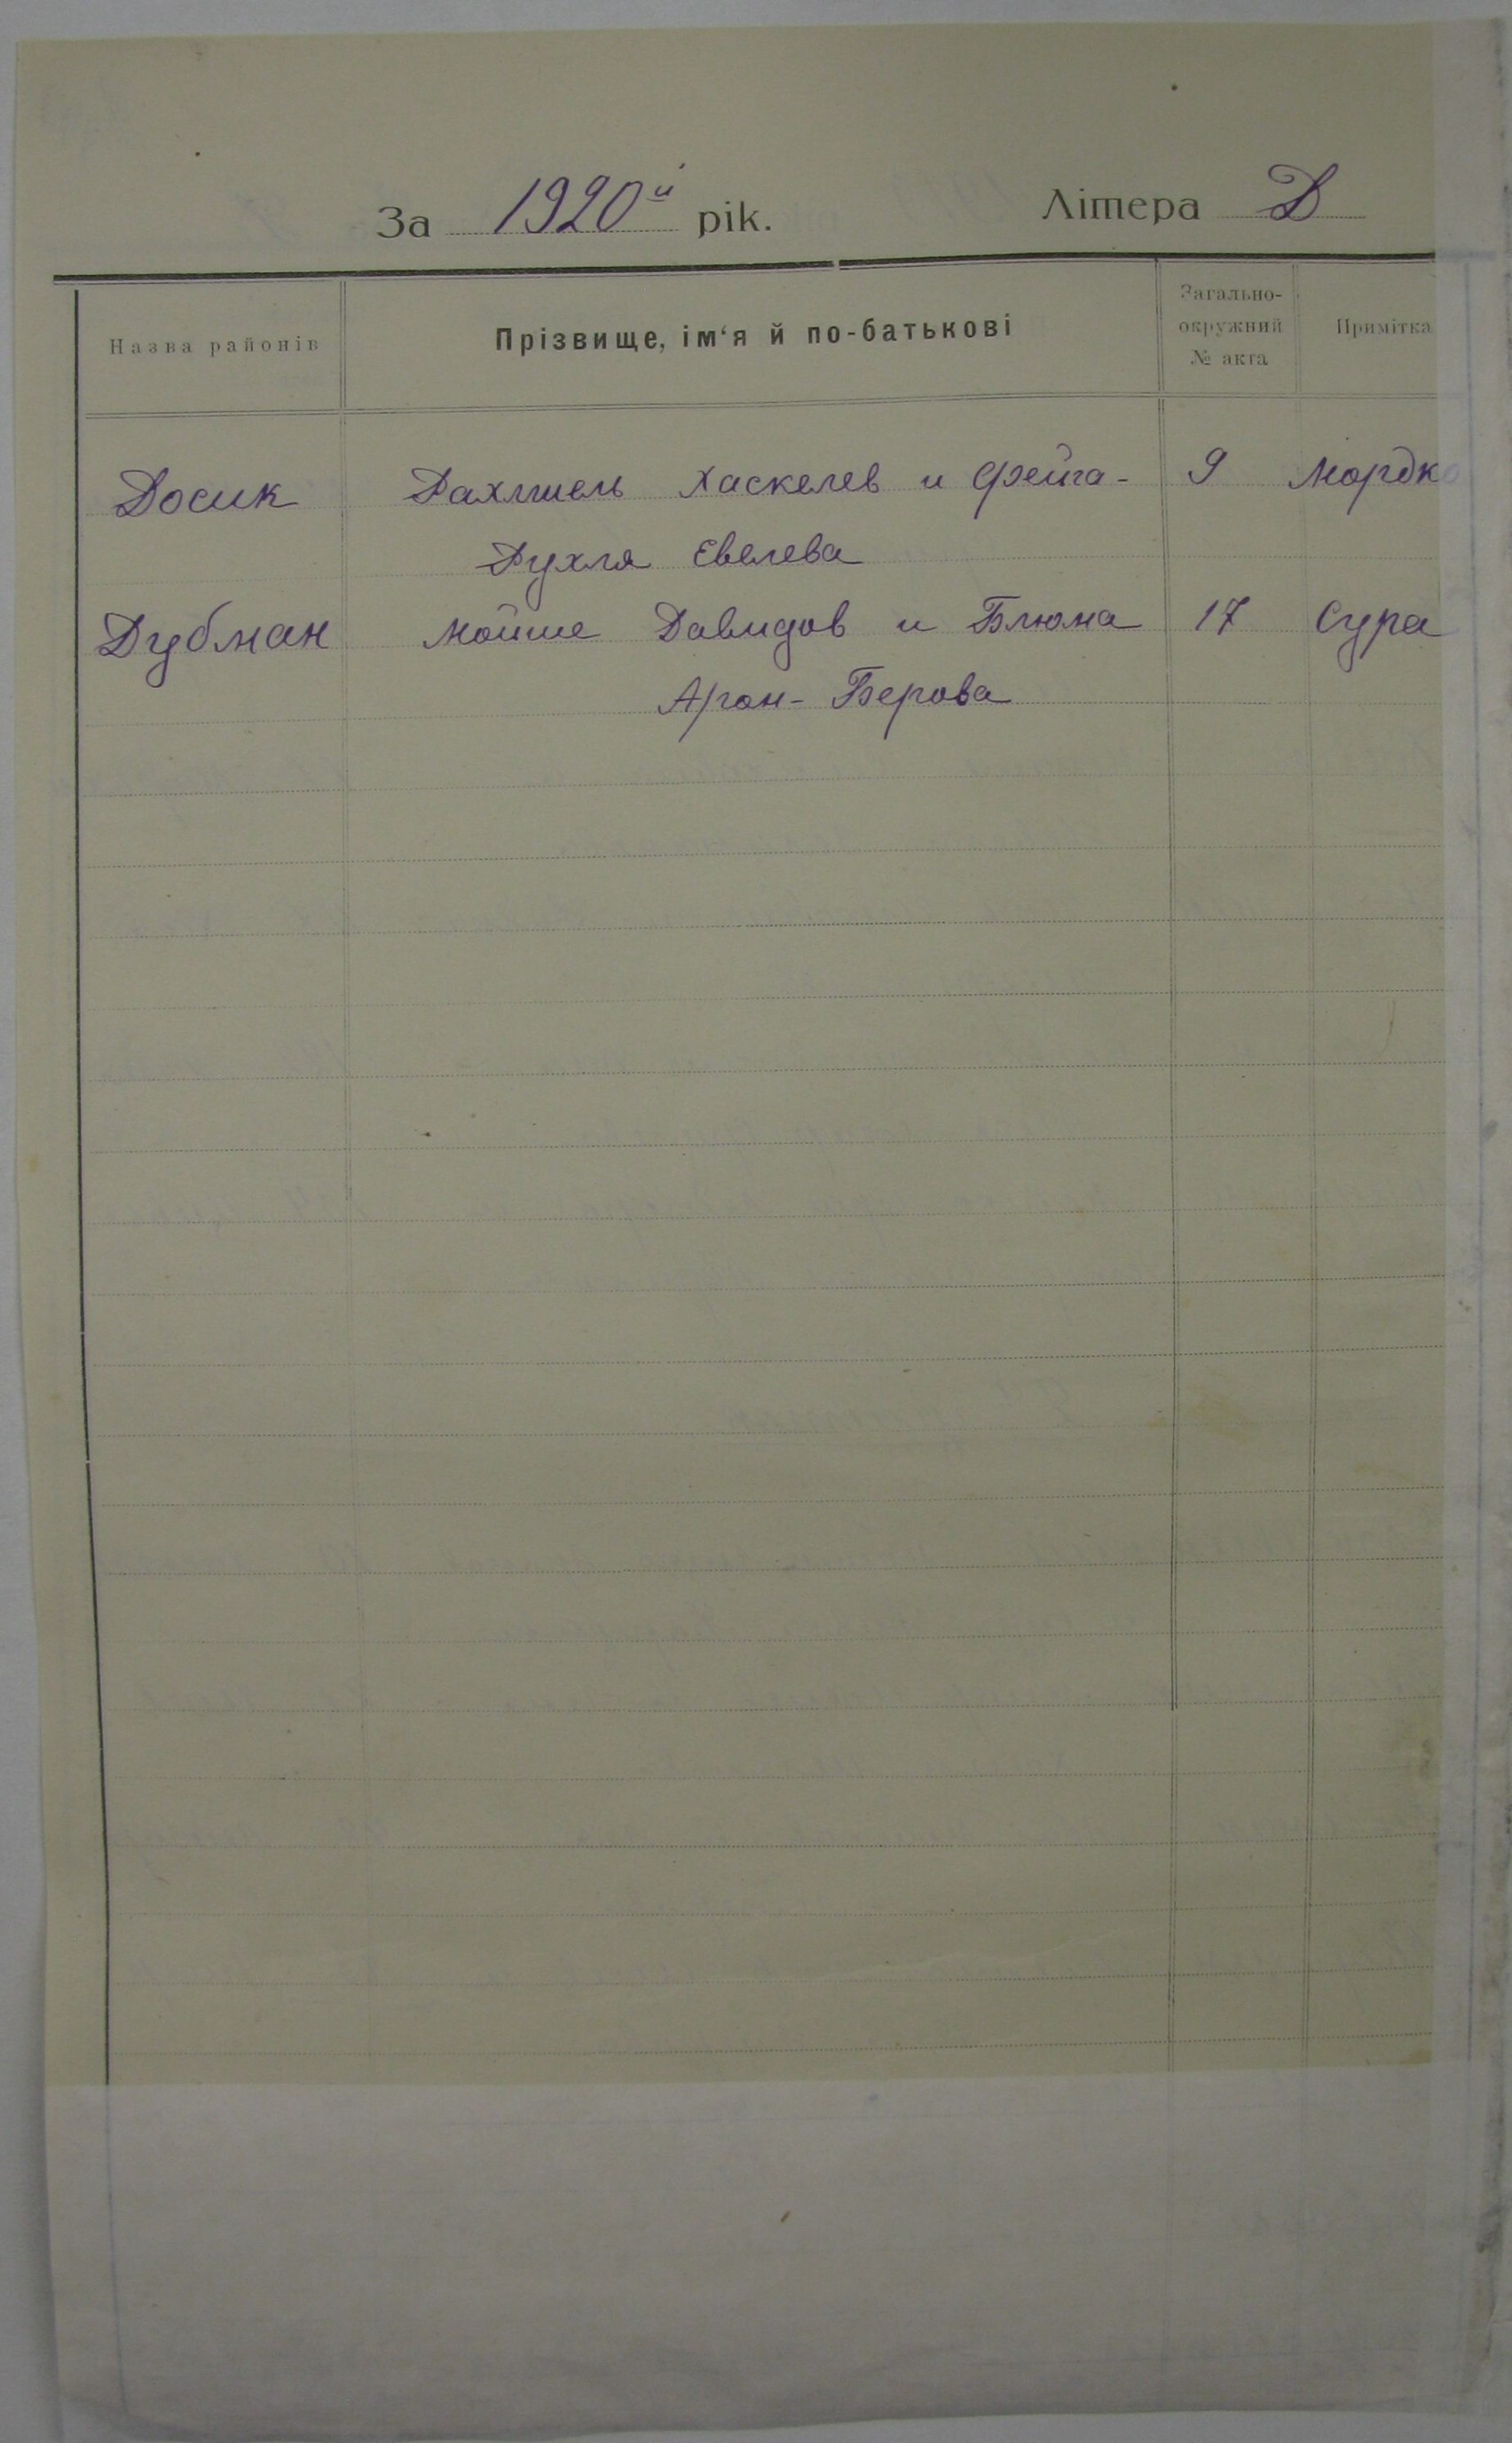 За 1920й рік. Літера Д
Назва районів Прізвище, ім‘я й по-батькові Загально-окружний № акта Примітка
Досик Рахмиель Хаскелев и Фейга- 9 Мордко
Рухля Евелева
Дубман Мойше Давидов и Блюма 17 Сура
Арон-Берова